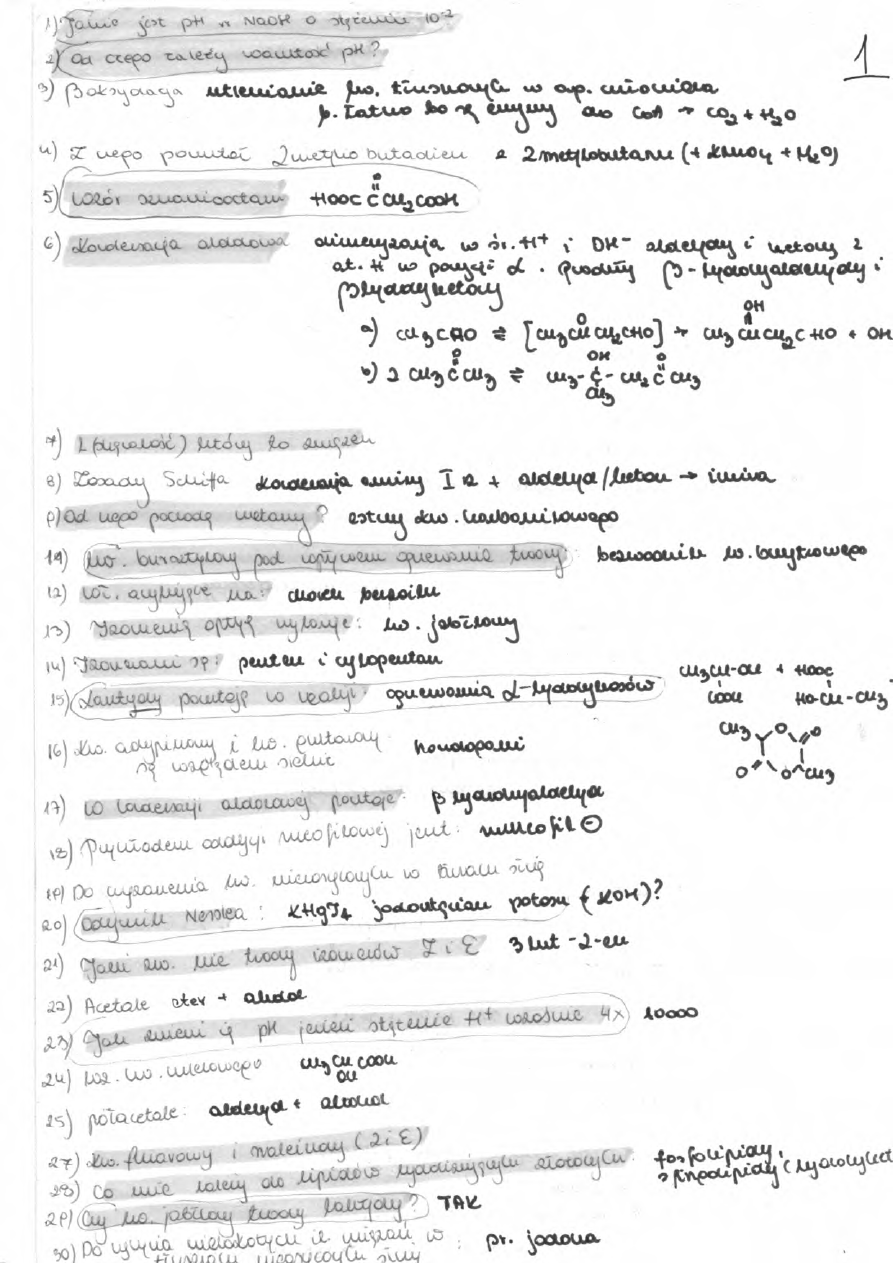 1) Jakie jest pH w NaOH o stężeniu 10⁻²
2) Od czego zależy wartość pH?
1
3) β oksydacja utlenianie kw. tłuszczowych w
b. łatwo bo są enzymy do CoA → CO₂ + H₂O
4) Z czego powstał 2metylobutadien z 2metylobutanu (+ KMnO₄ + H₂O)
5) Wzór HOOC C CH₂COOH
O
6) Kondensacja aldolowa dimeryzacja w śr. H⁺ i OH⁻ aldehydy i ketony z
at. H w pozycji α. Produkty β-hydroksyaldehydy i
βhydroksyketony
OH
a) CH₃CHO ⇌ [CH₃CHCH₂CHO] → CH₃CHCH₂CHO + OH
O
b) 2 CH₃CCH₃ ⇌ CH₃-C-CH₂CCH₃
O OH O
CH₃
7) który to związek
8) Zasady Schiffa kondensacja aminy I rz + aldehyd/keton → imina
9) Od czego pochodzą uretany? estry kw. karbaminowego
11) kw. bursztynowy pod wpływem ogrzewania tworzy: bezwodnik kw. bursztynowego
12) chlorek benzoilu
13) Izomerię optycz wykazuje: kw. jabłkowy
14) Izomerami są: penten i cyklopentan
15) Laktydy powstają w reakcji: ogrzewania α-hydroksykwasów
CH₃CH-OH + HOOC
COOH HO-CH-CH₃
CH₃ O O
O O CH₃
16) Kw. adypinowy i kw. glutarowy
są względem siebie homologami
17) W kondensacji aldolowej powstaje: β hydroksyaldehyd
18) Przykładem addycji nukleofilowej jest: nukleofil ⊖
19) Do wykazania kw. nienasyconych w
20) Odczynnik Nesslera: KHgI₄ jodortęcian potasu (KOH)?
21) Jaki zw. nie tworzy izomerów Z i E 3 but-2-en
22) Acetale eter + alkohol
23) Jak zmieni się pH jeżeli stężenie H⁺ wzrośnie 4x 10000
24) Wz. kw. mlekowego CH₃CHCOOH
OH
25) półacetale: aldehyd + alkohol
27) Kw. fumarowy i maleinowy (Z i E)
28) Co nie należy do lipidów hydrolizujących złożonych: fosfolipidy,
29) Czy kw. jabłkowy tworzy laktydy? TAK
30) Do wiązań w : pr. jodowa